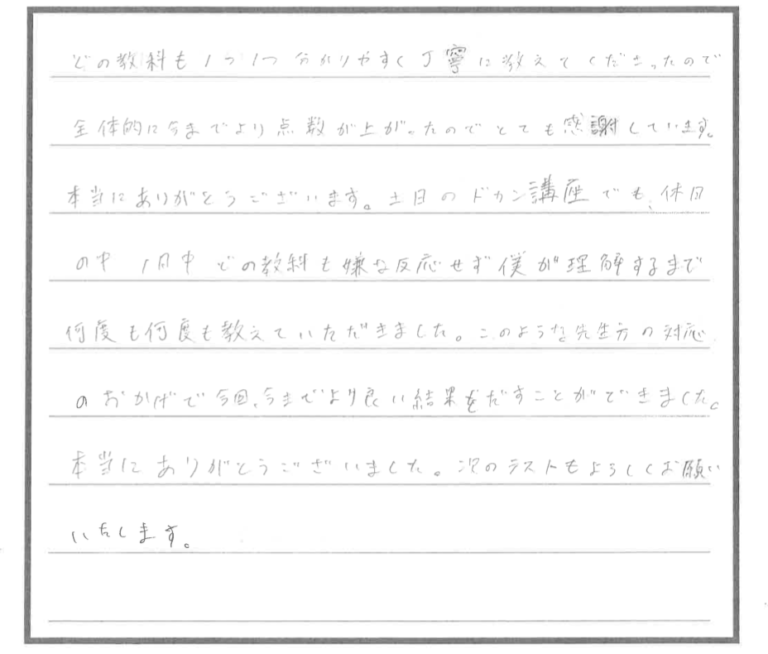 どの教科も1つ1つ分かりやすく丁寧に教えてくださったので
全体的に今までより点数が上がったのでとても感謝しています。
本当にありがとうございます。土日のドカン講座でも、休日
の中1日中どの教科も嫌な反応せず僕が理解するまで
何度も何度も教えていただきました。このような先生方の対応
のおかげで今回、今までより良い結果をだすことができました。
本当にありがとうございました。次のラストもよろしくお願い
いたします。